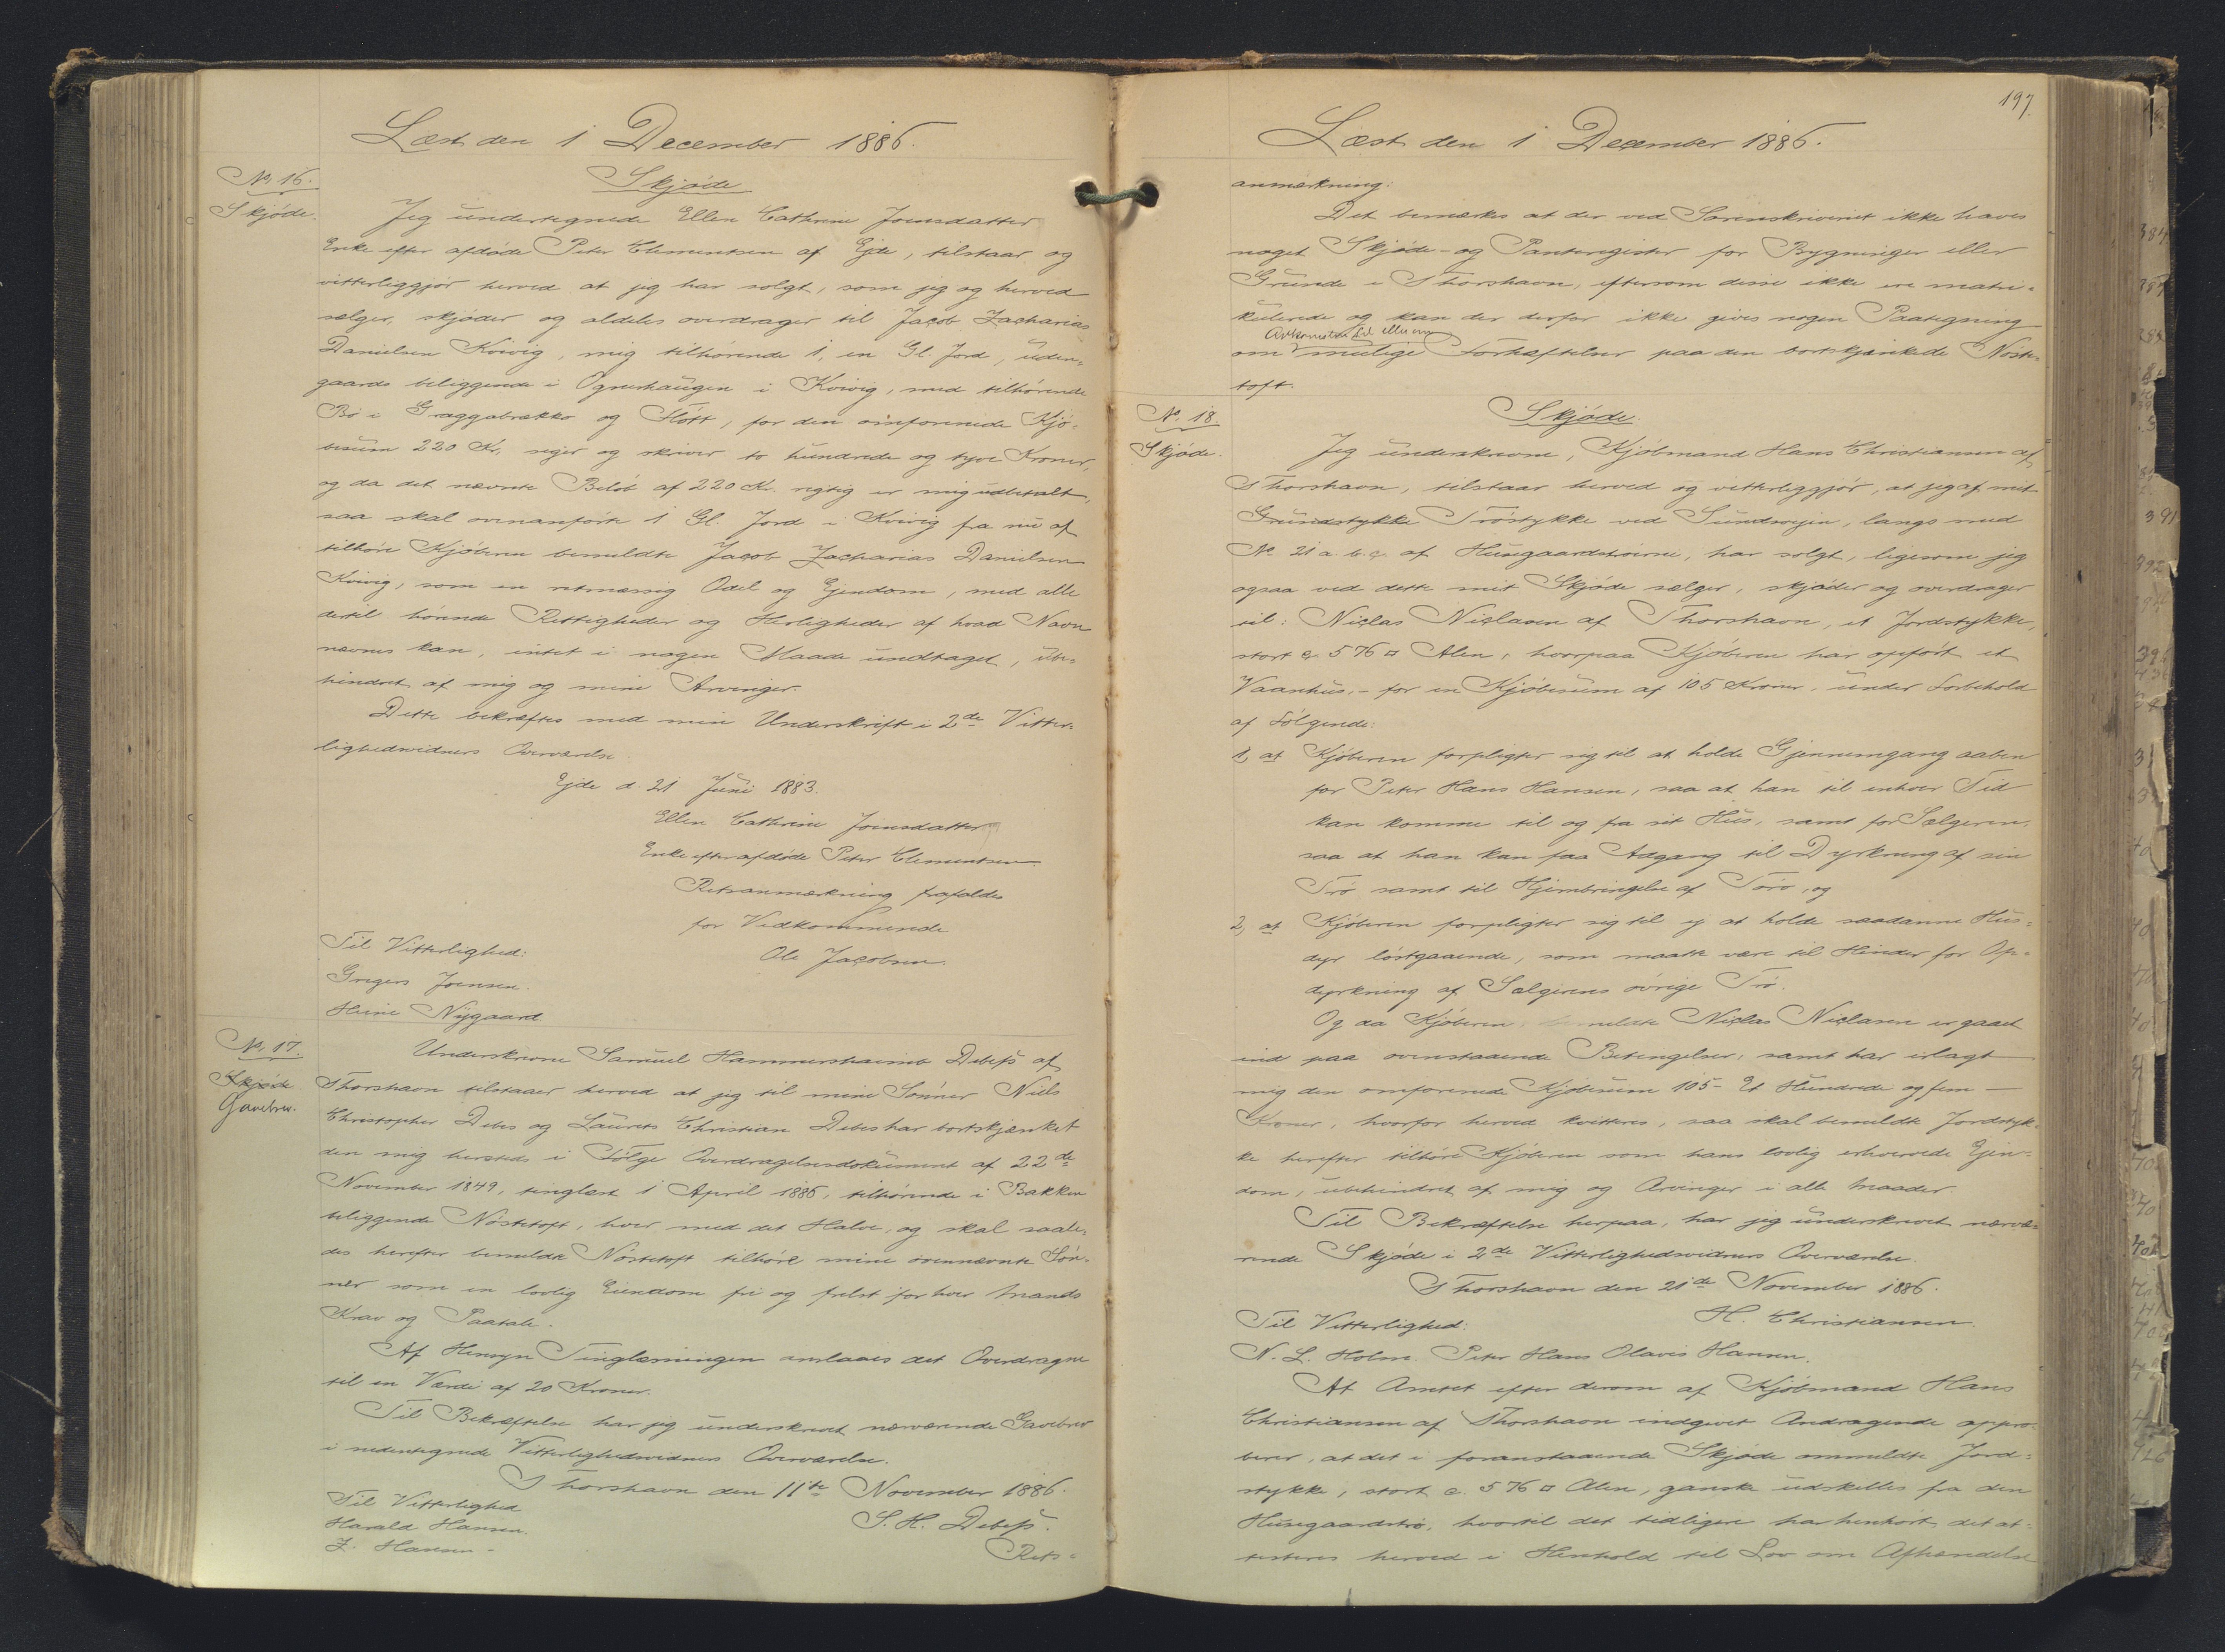 Læst den 1 December 1886.
No. 16.
Skjøde.
Skjøde
Jeg undertegnede Ellen Cathrine Joensdatter
Enke efter afdøde Peter Clementsen af Ejde, tilstaar og
vitterliggjør herved at jeg har solgt, som jeg og herved
sælger, skjøder og aldeles overdrager til Jacob Zacharias
Danielsen Kvivig, mig tilhørende 1, en Gl. Jord, uden-
gaards beliggende i Ognerhaugen i Kvivig, med tilhørende
Bø i Graggabrekko og Fløtt, for den omforenede Kjø-
besum 220 Kr, siger og skriver to hundrede og tyve Kroner,
og da det nævnte Beløb af 220 Kr. rigtig er mig udbetalt,
saa skal ovenanførte 1 Gl. Jord i Kvivig fra nu af
tilhøre Kjøberen bemeldte Jacob Zacharias Danielsen
Kvivig, som en retmæssig Odel og Ejendom, med alle
dertil hørende Rettigheder og Herligheder af hvad Navn
nævnes kan, intet i nogen Maade undtaget, ube-
hindret af mig og mine Arvinger.
Dette bekræftes med min Underskrift i 2de Vitter-
lighedsvidners Overværelse.
Ejde d. 21 Juni 1883.
Ellen Cathrine Joensdatter
Enke efter afdøde Peter Clementsen
Retsanmærkning frafaldes
for Vedkommende
Ole Jacobsen.
Til Vitterlighed:
Gregers Joensen.
Heine Nygaard
No. 17.
Skjøde
Gavebrev.
Underskrevne Samuel Hammershaimb Debess af
Thorshavn tilstaaer herved at jeg til mine Sønner Niels
Christopher Debes og Laurits Christian Debes har bortskjænket
den mig hersteds i Følge Overdragelsesdokument af 22de
November 1849, tinglæst 1 April 1886, tilhørende i Bakken
beliggende Nøstetoft, hver med det Halve, og skal saale-
des herefter bemeldte Nøstetoft tilhøre mine ovennævnte Søn-
ner som en lovlig Eiendom fri og frelst for hver Mands
Krav og Paatale.
Af Hensyn Tinglæsningen anslaaes det Overdragne
til en Værdi af 20 Kroner.
Til Bekræftelse har jeg underskrevet nærværende Gavebrev
i nedentegnede Vitterlighedsvidners Overværelse.
Thorshavn den 11te November 1886.
Til Vitterlighed
S. H. Debess.
Harald Hansen.
Z. Hansen -
Rets-
197
Læst den 1 December 1886.
anmærkning:
Det bemærkes at der ved Sorenskriveriet ikke haves
noget Skjøde- og Panteregister for Bygninger eller
Grunde i Thorshavn, eftersom disse ikke ere matri-
kulerede og kan der derfor ikke gives nogen Paategning
Adkomsten til eller om
om mulige Forhæftelser paa den bortskjænkede Nøste-
toft.
No. 18.
Skjøde.
Skjøde
Jeg underskrevne, Kjøbmand Hans Christiansen af
Thorshavn, tilstaar herved og vitterliggjør, at jeg af mit
Grundstykke Trøstykke ved Sundsvejen, langs med
No 21 a. b. c. af Husegaardstrøerne, har solgt, ligesom jeg
ogsaa ved dette mit Skjøde sælger, skjøder og overdrager
til: Niclas Niclasen af Thorshavn, et Jordstykke,
stort c. 576 □ Alen, hvorpaa Kjøberen har opført et
Vaanhus, - for en Kjøbesum af 105 Kroner, under Forbehold
af Følgende:
1, at Kjøberen forpligter sig til at holde Gjennemgang aaben
for Peter Hans Hansen, saa at han til enhver Tid
kan komme til og fra sit Hus, samt for Sælgeren,
saa at han kan faa Adgang til Dyrkning af sin
Trø samt til Hjembringelse af Tørv, og
2, at Kjøberen forpligter sig til ej at holde saadanne Hus-
dyr løstgaaende, som maatte være til Hinder for Op-
dyrkning af Sælgerens øvrige Trø.
Og da Kjøberen bemeldte Niclas Niclasen er gaaet
ind paa ovenstaaende Betingelser, samt har erlagt
mig den omforenede Kjøbesum 105 - Et Hundrede og fem -
Kroner, hvorfor herved kvitteres, saa skal bemeldte Jordstyk-
ke herefter tilhøre Kjøberen som hans lovlig erhvervede Ejen-
dom, ubehindret af mig og Arvinger i alle Maader.
Til Bekræftelse herpaa, har jeg underskrevet nærvæ-
rende Skjøde i 2de Vitterlighedsvidners Overværelse.
Thorshavn den 21de November 1886.
Til Vitterlighed:
H. Christiansen.
N. L. Holm. Peter Hans Olavis Hansen.
At Amtet efter derom af Kjøbmand Hans
Christiansen af Thorshavn indgivet Andragende appro-
berer, at det i foranstaaende Skjøde ommeldte Jord-
stykke, stort c. 576 □ Alen, ganske udskilles fra den
Husegaardstrø, hvortil det tidligere har henhørt, det at-
testeres herved i Henhold til Lov om Afhændelse